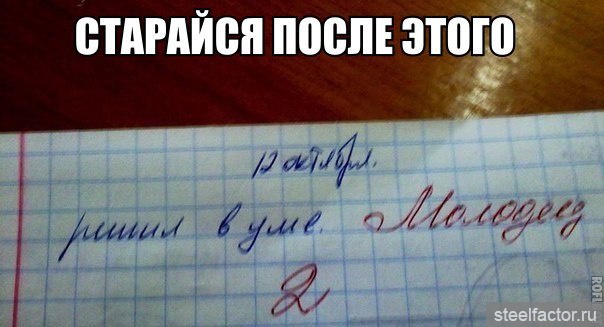 СТАРАЙСЯ ПОСЛЕ ЭТОГО
12 октября.
решил в уме. Молодец
2
ROFL
steelfactor.ru